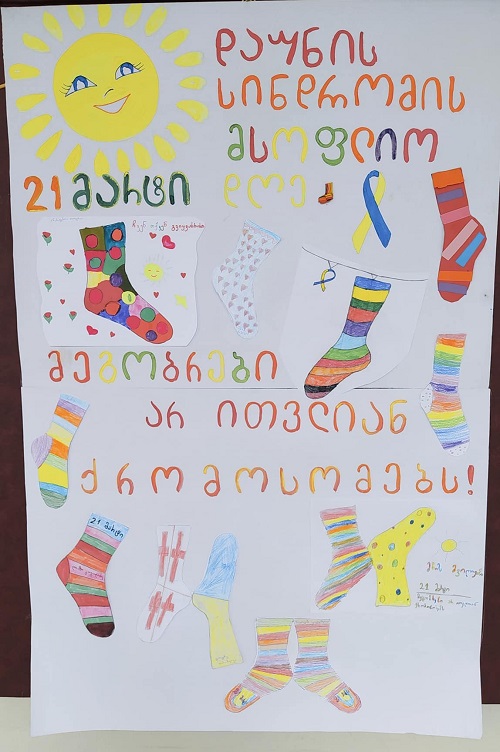 დაუნის
სინდრომის
მსოფლიო
21 მარტი დღე
მეგობრები
არ ითვლიან
ქრომოსომებს!
21 მარტი
21 მარტი